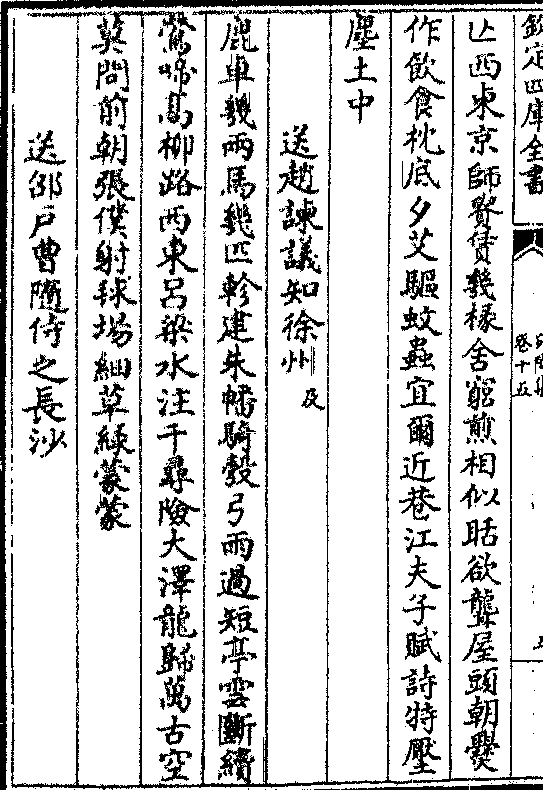 欽定四庫全書
卷十五
𠃊西東京師賃𠎝幾椽舍窮煎相似聒欲聾屋頭朝爨
作飲食枕底夕艾驅蚊蟲宜爾近巷江夫子賦詩特壓
塵土中
送趙諫議知徐州 及
鹿車幾兩馬幾匹軫建朱幡騎彀弓雨過短亭雲斷續
鶯啼高柳路西東呂梁水注千尋險大澤龍歸萬古空
莫問前朝張僕射毬場細草綠蒙蒙
送邵戶曹隨侍之長沙